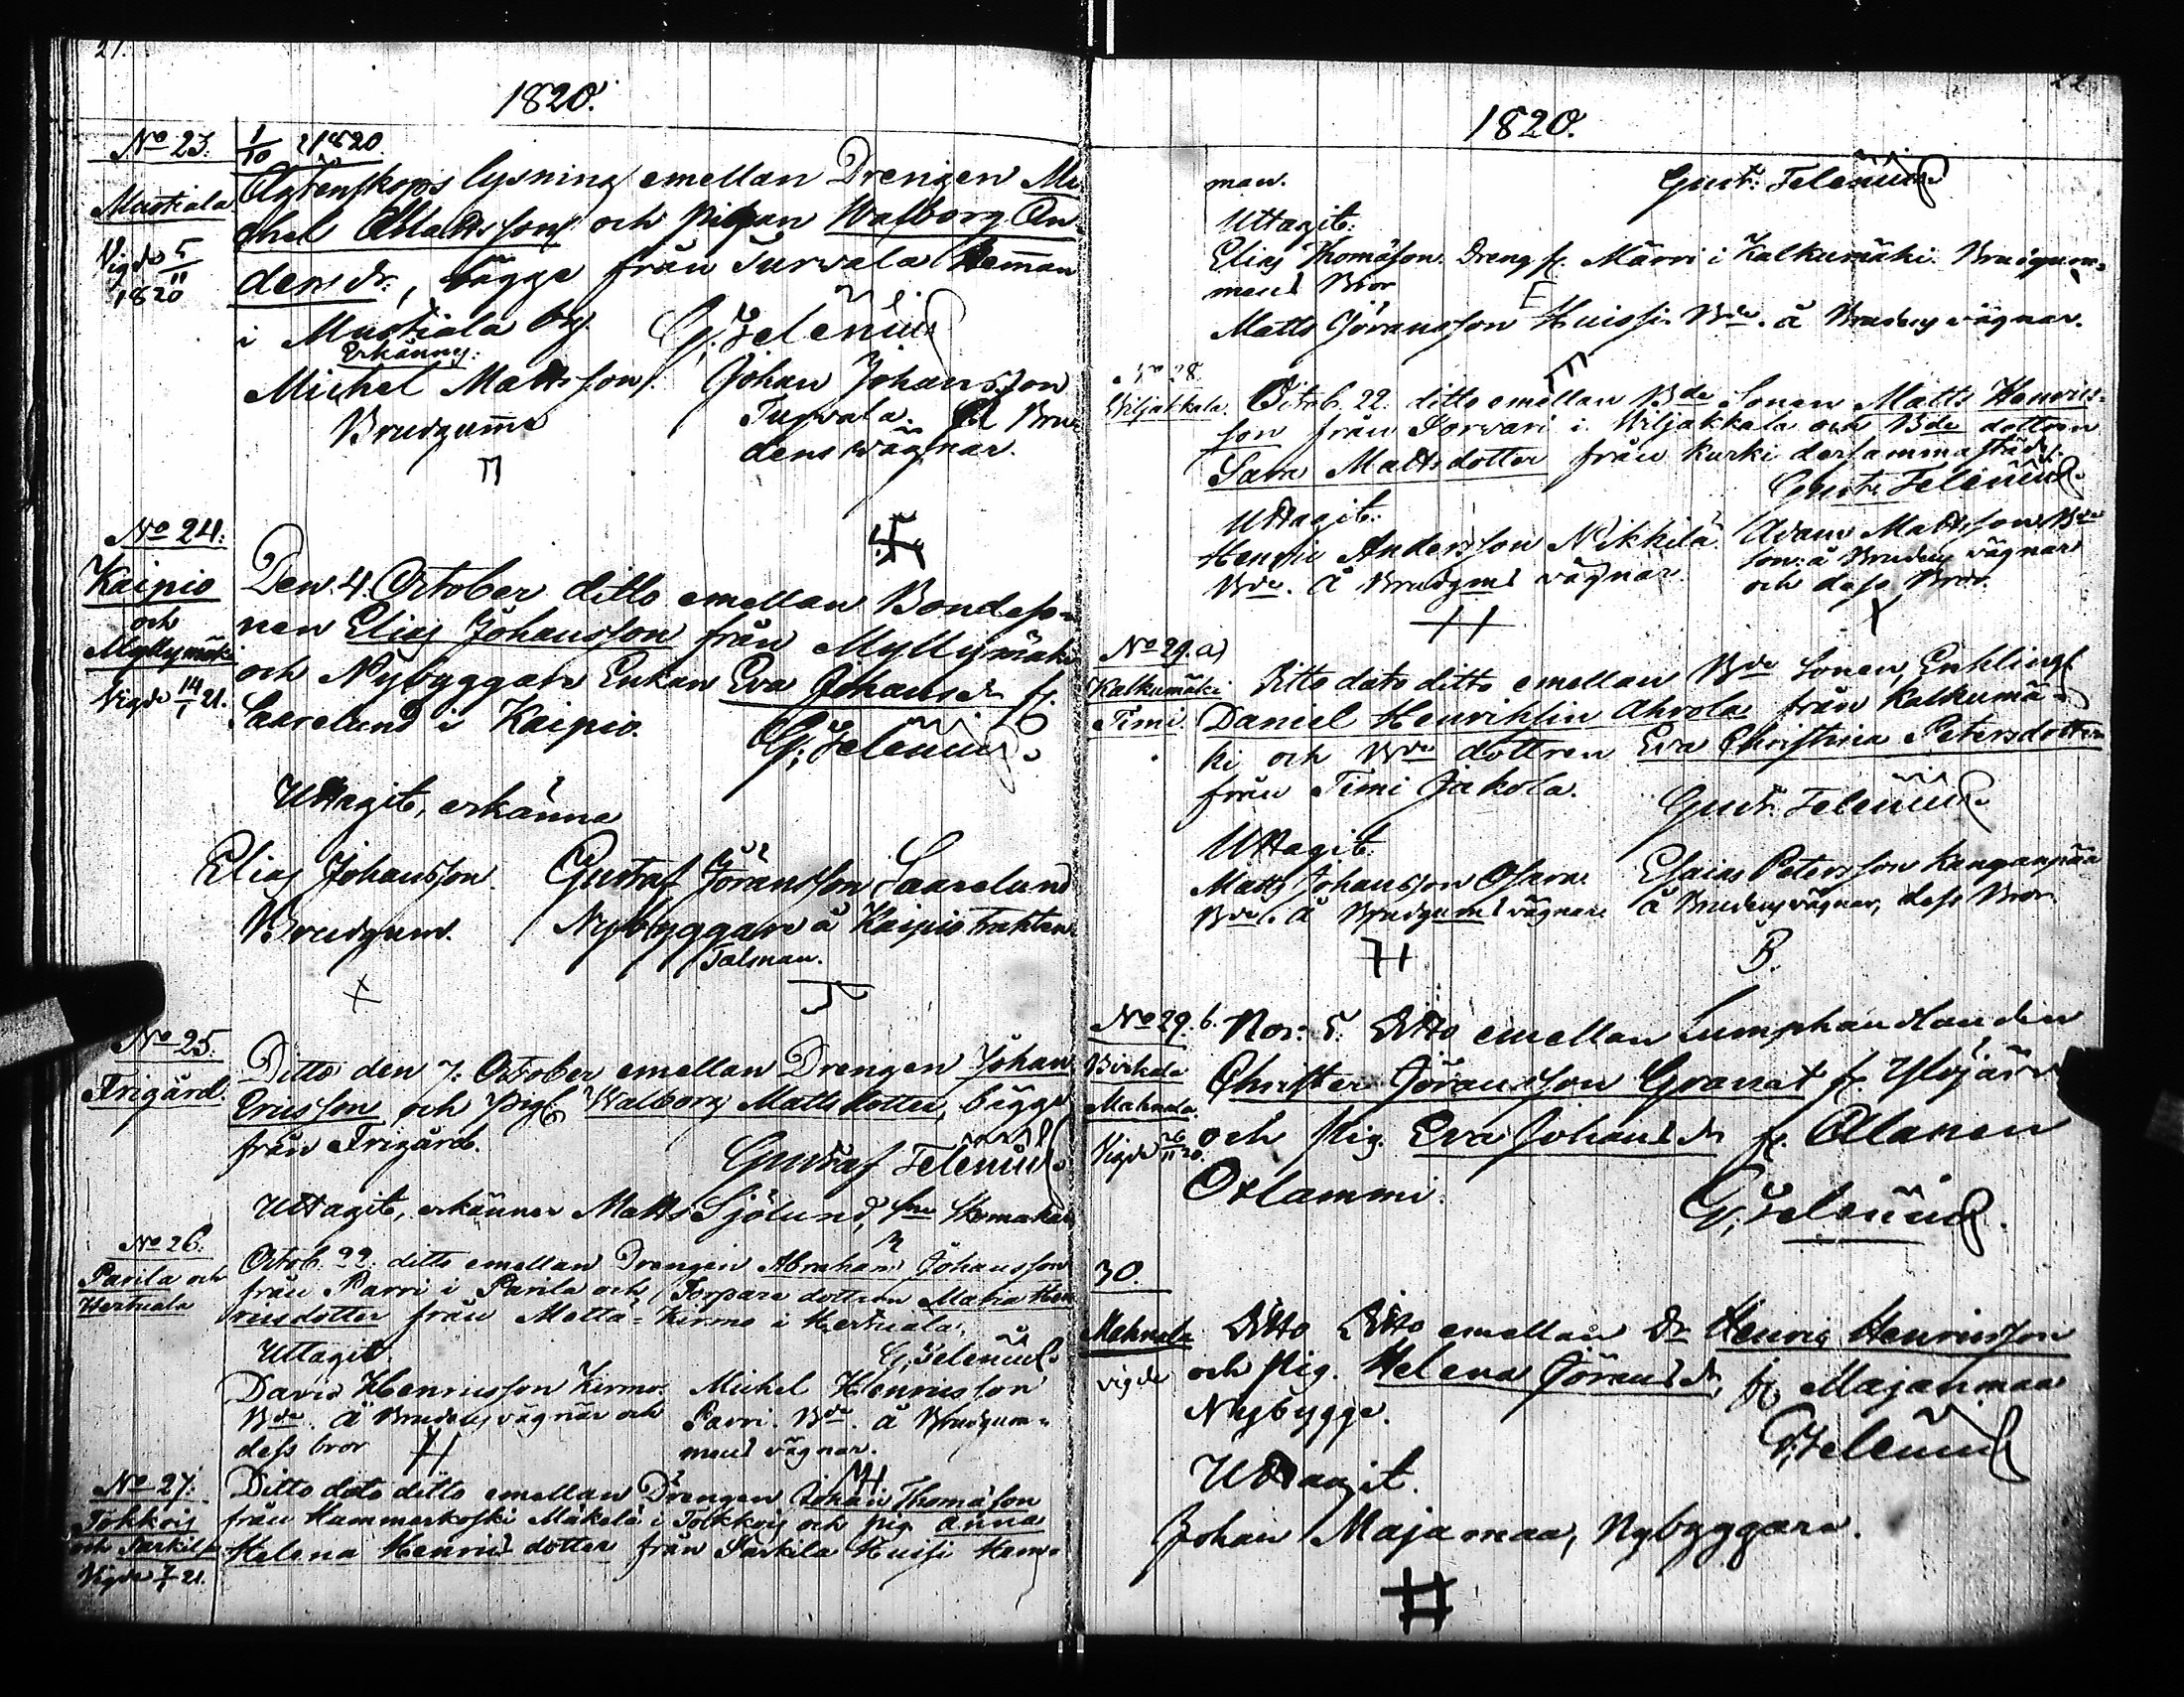 21.
1820.
No 23.
Mustiala
Vigde 5/11
1820
1/10 1820
Ägtenskaps lysning emellan Drengen Mi-
chel Mattsson och pigan Walborg An-
dersdr, bägge från Turvala Hemman
i Mustiala by. G. Telenius
Erkänns:
Michel Mattsson. Johan Johansson
Brudgumme Turvala. På Bru-
dens wägnar.
No 24:
Kaipio
och
Myllymäki
Vigde 14/1 21.
Den 4 October ditto emellan Bondeso-
nen Elias Johansson från Myllymäki
och Nybyggare Enkan Eva Johansdr fr.
Saarelund i Kaipio. G. Telenius
Uttagit, erkänna
Elias Johansson. Gustaf Göransson Saarelund
Brudgum. Nybyggare å Kaipio trakten
Talman.
No 25.
Frigård.
Ditto den 7: October emellan Drengen Johan
Ericsson och Pig. Walborg Mattsdotter, bägge
från Frigård.
Gustaf Telenius
Uttagit, erkänner Matts Sjölund, Skomakare
No 26.
Pavila och
Hertuala
Octob. 22. ditto emellan Drengen Abraham Johansson
från Parri i Pavila och Torpare dottren Maria Hen-
ricsdotter från Metta-Kirmo i Hertuala.
Uttagit. G. Telenius
David Henricsson Kirmo. Michel Henricsson
Bde. å Brudens vägnar och Parri. Bde. å Brudgum-
dess bror mens vägnar.
No 27.
Tokkois
och Sarkila
Vigde 7/1 21.
Ditto dato ditto emellan Drengen Johan Thomasson
från Hammerkoski Mäkelä i Tokkois och pig Anna
Helena Henrics dotter från Sarkila Huissi Hem-
22
1820.
man. Gust. Telenius
Uttagit:
Elias Thomasson Dreng fr. Märri i Kalkumäki. Brudgum-
mens Bror
Matts Göransson Huissi Bde. å Brudens vägnar.
No 28.
Wiljakkala.
Octob. 22. ditto emellan Bde Sonen Matts Henrics-
son från Sorvari i Wiljakkala och Bde dottren
Sara Mattsdotter från Kurki dersammastädes.
Gust. Telenius
Uttagit:
Henric Andersson Nikkilä. Adam Mattsson Bde
Bde. å Brudgums vägnar. son: å Brudens vägnar
och dess Bror.
No 29. a)
Kalkumäki
Timi.
Ditto dato ditto emellan Bde Sonen, Enklingen
Daniel Henriksson Ahrola från Kalkumä-
ki och Bde dottren Eva Christina Petersdotter
från Timi Jakola. Gust. Telenius
Uttagit:
Matts Johansson Esaias Petersson Kanganpää
Bde. å Brudgums vägnar å Brudens vägnar, dess Bror.
B.
No 29. b.
Birkala
Mahnala.
Vigde 26/11 20.
Nov. 5. Ditto emellan Lumphandlanden
Christer Göransson Granat fr Ylöjärvi
och Pig. Eva Johansdr fr. Allanen
Oxlammi.
G. Telenius.
30.
Mahnala
vigde
Ditto Ditto emellan Dr Henric Henricsson
och Pig. Helena Göransdr, fr Majanmaa
Nybygge.
G. Telenius
Uttagit.
Johan Majamaa, Nybyggare.